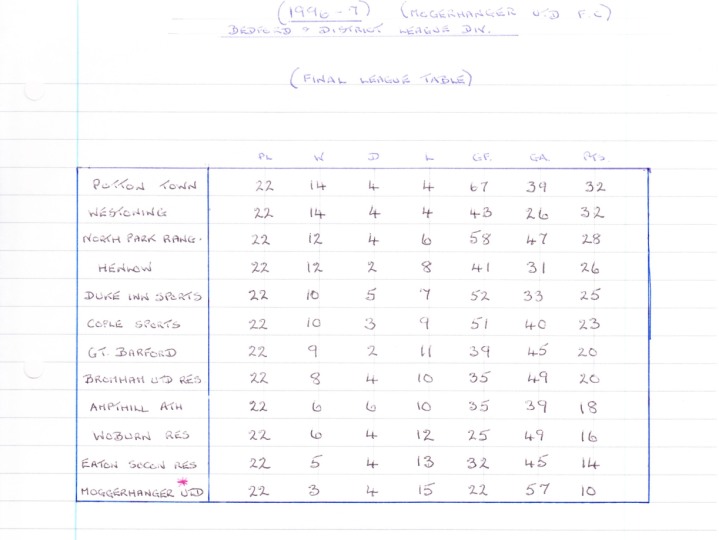 (1996-7) (MOGGERHANGER UTD F.C)
BEDFORD & DISTRICT LEAGUE DIV.
(FINAL LEAGUE TABLE)
PL W D L GF. GA. PTS.
POTTON TOWN 22 14 4 4 67 39 32
WESTONING 22 14 4 4 43 26 32
NORTH PARK RANG. 22 12 4 6 58 47 28
HENLOW 22 12 2 8 41 31 26
DUKE INN SPORTS 22 10 5 7 52 33 25
COPLE SPORTS 22 10 3 9 51 40 23
GT. BARFORD 22 9 2 11 39 45 20
BROMHAM UTD RES 22 8 4 10 35 49 20
AMPTHILL ATH 22 6 6 10 35 39 18
WOBURN RES 22 6 4 12 25 49 16
EATON SOCON RES 22 5 4 13 32 45 14
MOGGERHANGER UTD * 22 3 4 15 22 57 10